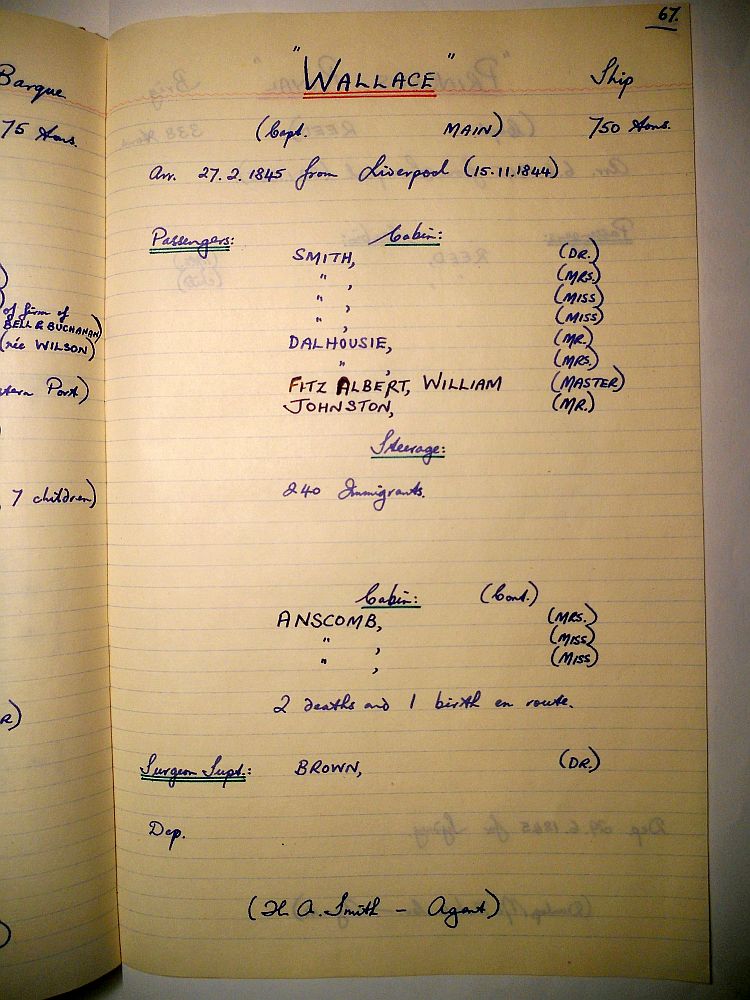 67.
Barque
"WALLACE" Ship
75 tons.
(Capt. MAIN) 750 tons.
Arr. 27.2.1845 from Liverpool (15.11.1844)
Passengers: Cabin:
SMITH, (DR.)
" , (MRS.)
" , (MISS)
" , (MISS)
DALHOUSIE, (MR.)
" , (MRS.)
FITZ ALBERT, WILLIAM (MASTER)
JOHNSTON, (MR.)
of firm of
BELL & BUCHANAN)
(née WILSON)
Port)
7 children)
Steerage:
240 Immigrants.
Cabin: (Cont.)
ANSCOMB, (MRS.)
" , (MISS)
" , (MISS)
2 deaths and 1 birth en route.
Surgeon Supt.: BROWN, (DR.)
Dep.
(H. A. Smith - Agent)